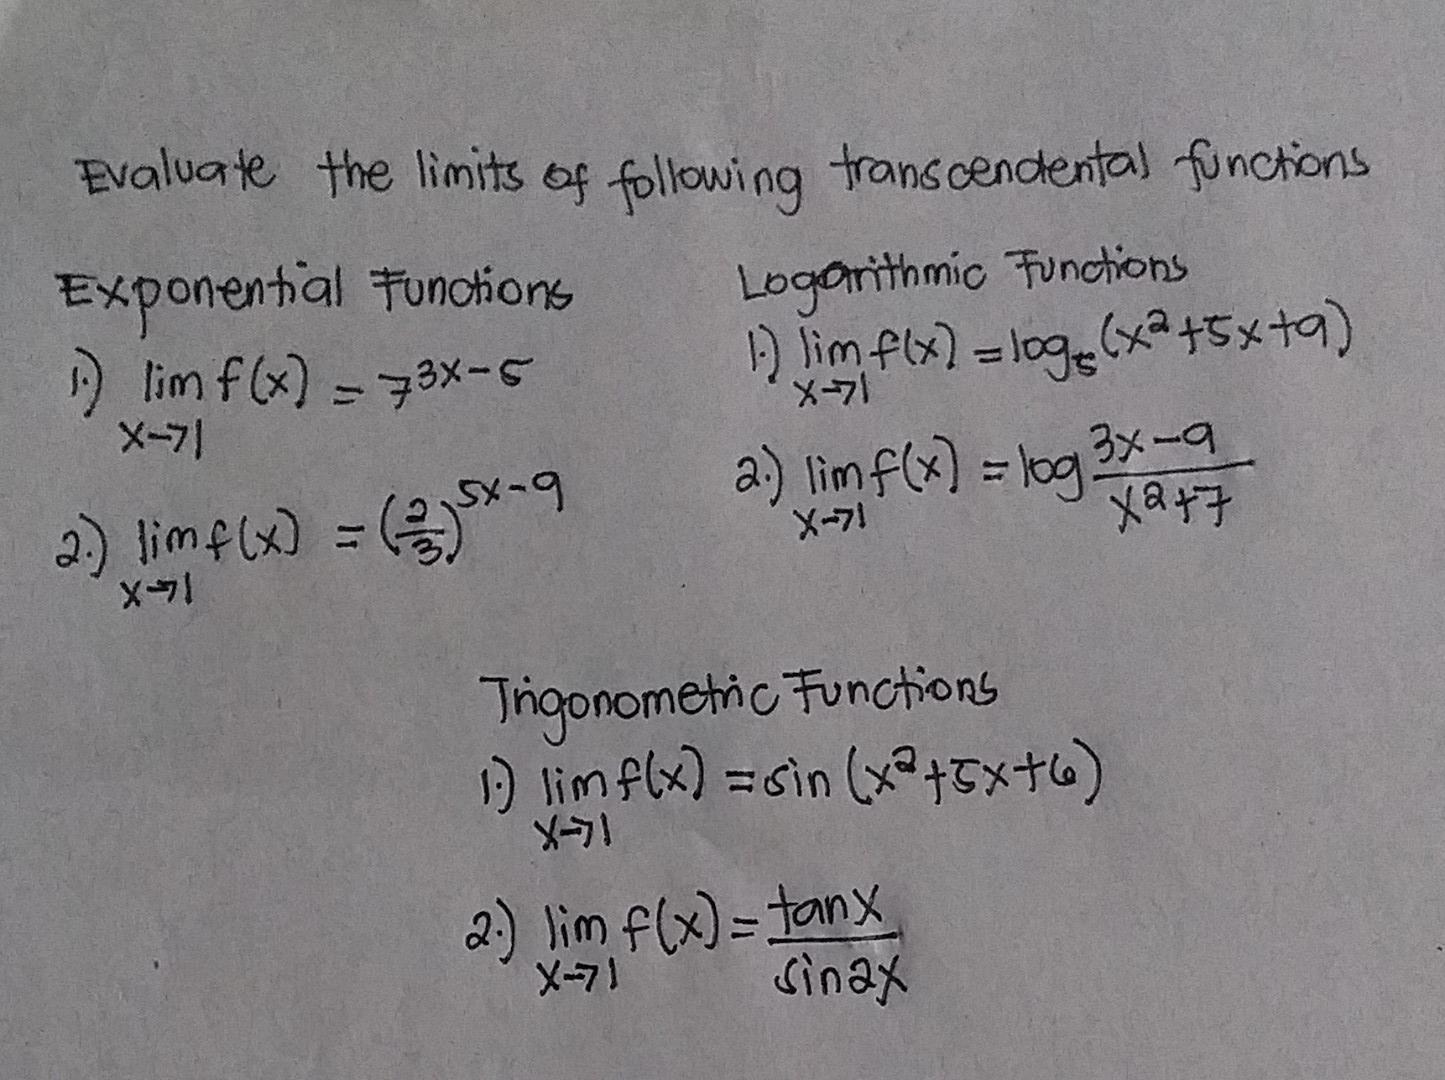 Evaluate the limits of following transcendental functions
Exponential Functions
1.) lim f(x) = 7^{3x-5}
x→1
2.) lim f(x) = (2/3)^{5x-9}
x→1
Logarithmic Functions
1.) lim f(x) = log₅(x²+5x+9)
x→1
2.) lim f(x) = log (3x-9)/(x²+7)
x→1
Trigonometric Functions
1.) lim f(x) = sin (x²+5x+6)
x→1
2.) lim f(x) = tanx/sin2x
x→1